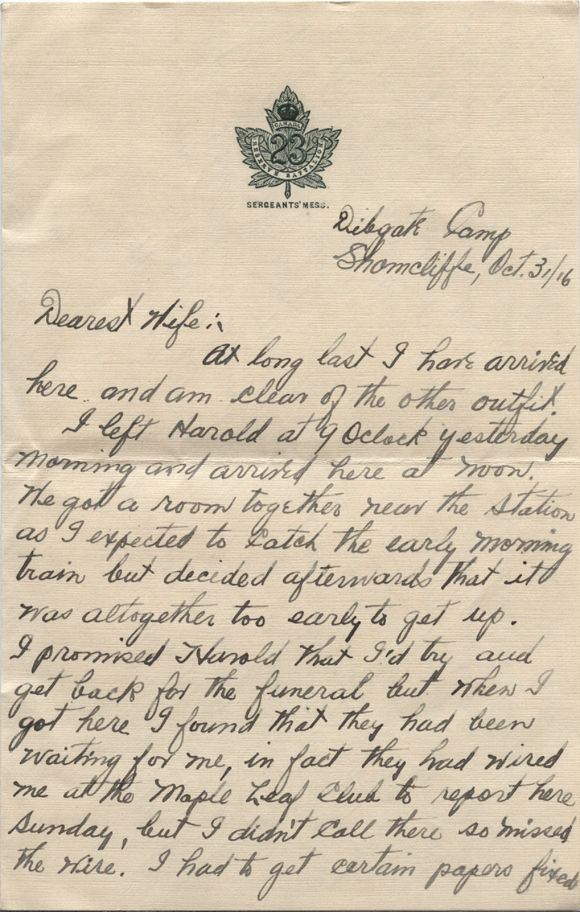 CANADA
23
RESERVE BATTALION
SERGEANTS' MESS.
Dibgate Camp
Shorncliffe, Oct. 31/16
Dearest Wife:
At long last I have arrived
here and am clear of the other outfit.
I left Harold at 9 Oclock yesterday
morning and arrived here at noon.
We got a room together near the station
as I expected to catch the early morning
train but decided afterwards that it
was altogether too early to get up.
I promised Harold that I'd try and
get back for the funeral but when I
got here I found that they had been
waiting for me, in fact they had wired
me at the Maple Leaf Club to report here
Sunday, but I didn't call there so missed
the wire. I had to get certain papers fixed